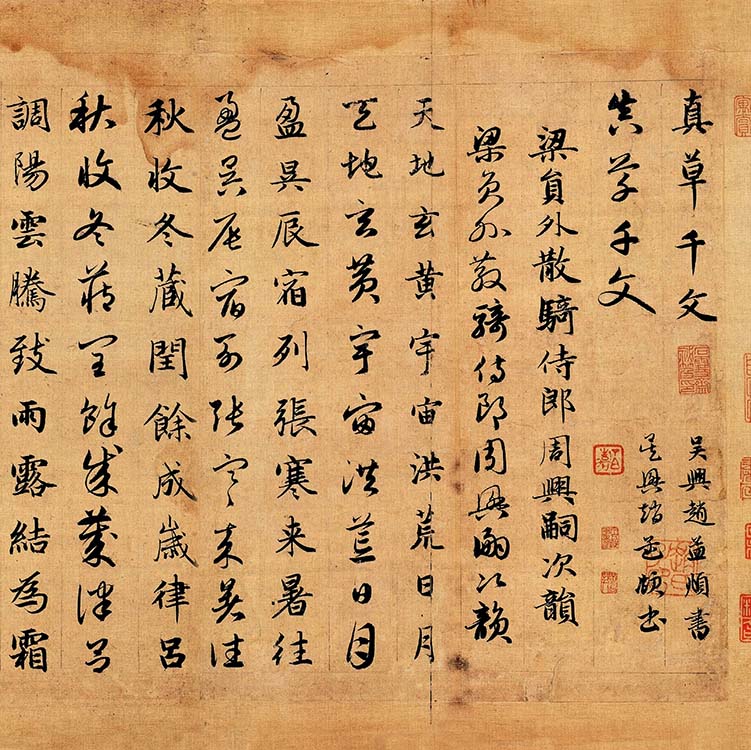 真草千文
吴興趙孟頫書
真草千文
吴興趙孟頫書
梁員外散騎侍郎周興嗣次韻
梁員外散騎侍郎周興嗣次韻
天地玄黄宇宙洪荒日月
天地玄黄宇宙洪荒日月
盈昃辰宿列張寒来暑往
盈昃辰宿列張寒来暑往
秋收冬藏閏餘成歲律呂
秋收冬藏閏餘成歲律呂
調陽雲騰致雨露結為霜